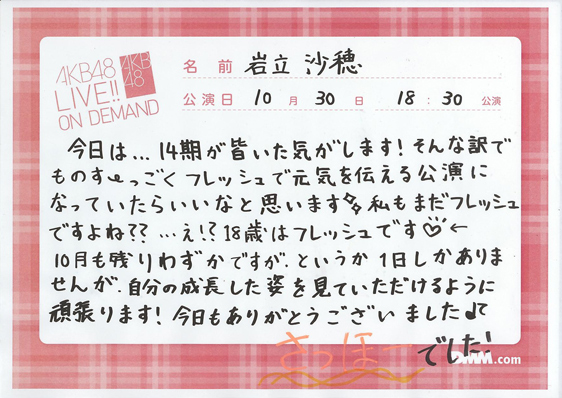 AKB48
LIVE!!
ON DEMAND
AKB
48
名前 岩立 沙穂
公演日 10月30日 18:30公演
今日は...14期が皆いた気がします!そんな訳で
ものすーっごくフレッシュで元気を伝える公演に
なっていたらいいなと思います 私もまだフレッシュ
ですよね??...え!?18歳はフレッシュです♡←
10月も残りわずかですが、というか1日しかありま
せんが、自分の成長した姿を見ていただけるように
頑張ります!今日もありがとうございました♪て
さっほーでした!
DMM.com